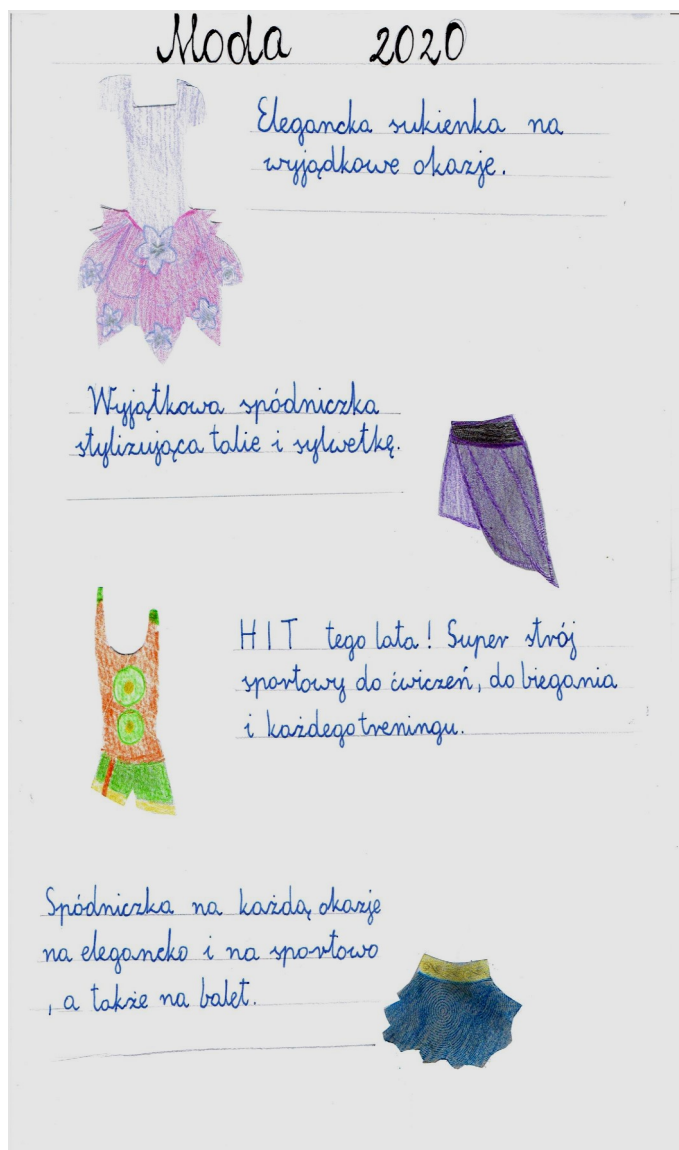 Moda 2020
Elegancka sukienka na
wyjądkowe okazje.
Wyjątkowa spódniczka
stylizująca talie i sylwetkę.
HIT tego lata! Super strój
sportowy do ćwiczeń, do biegania
i każdego treningu.
Spódniczka na każdą okazje
na elegancko i na sportowo
, a także na balet.